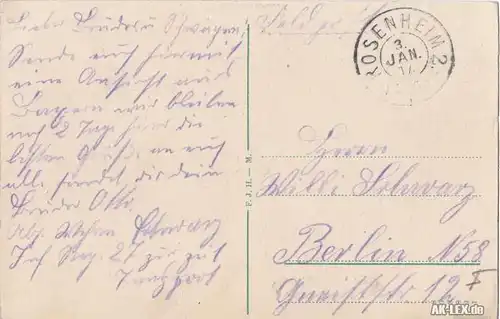 Liebe Brüder u Schwager,
Sende euch hiermit
eine Ansicht aus
Bayern wir bleiben
noch 2 Tage hier die
besten Grüße an euch
alle sendet dir dein
Bruder Otto
Abs. Schwarz
Inf Reg. 27 zur zeit
Feldpost
ROSENHEIM 2.
3.
JAN.
F. J. H. — M.
Herrn
Willi Schwarz
Berlin N 58
Gneiststr 12
AK-LEX.de